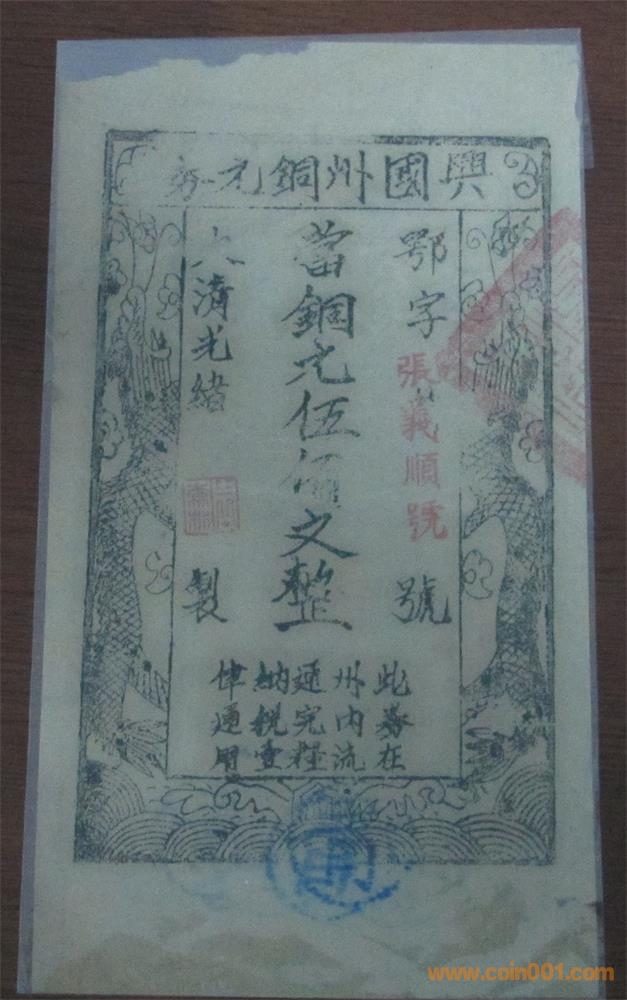 興國州銅元券
鄂字
張義順號
號
當銅元伍佰文整
大清光緒
製
此券在
州内流
通完糧
納税壹
律通用
www.coin001.com